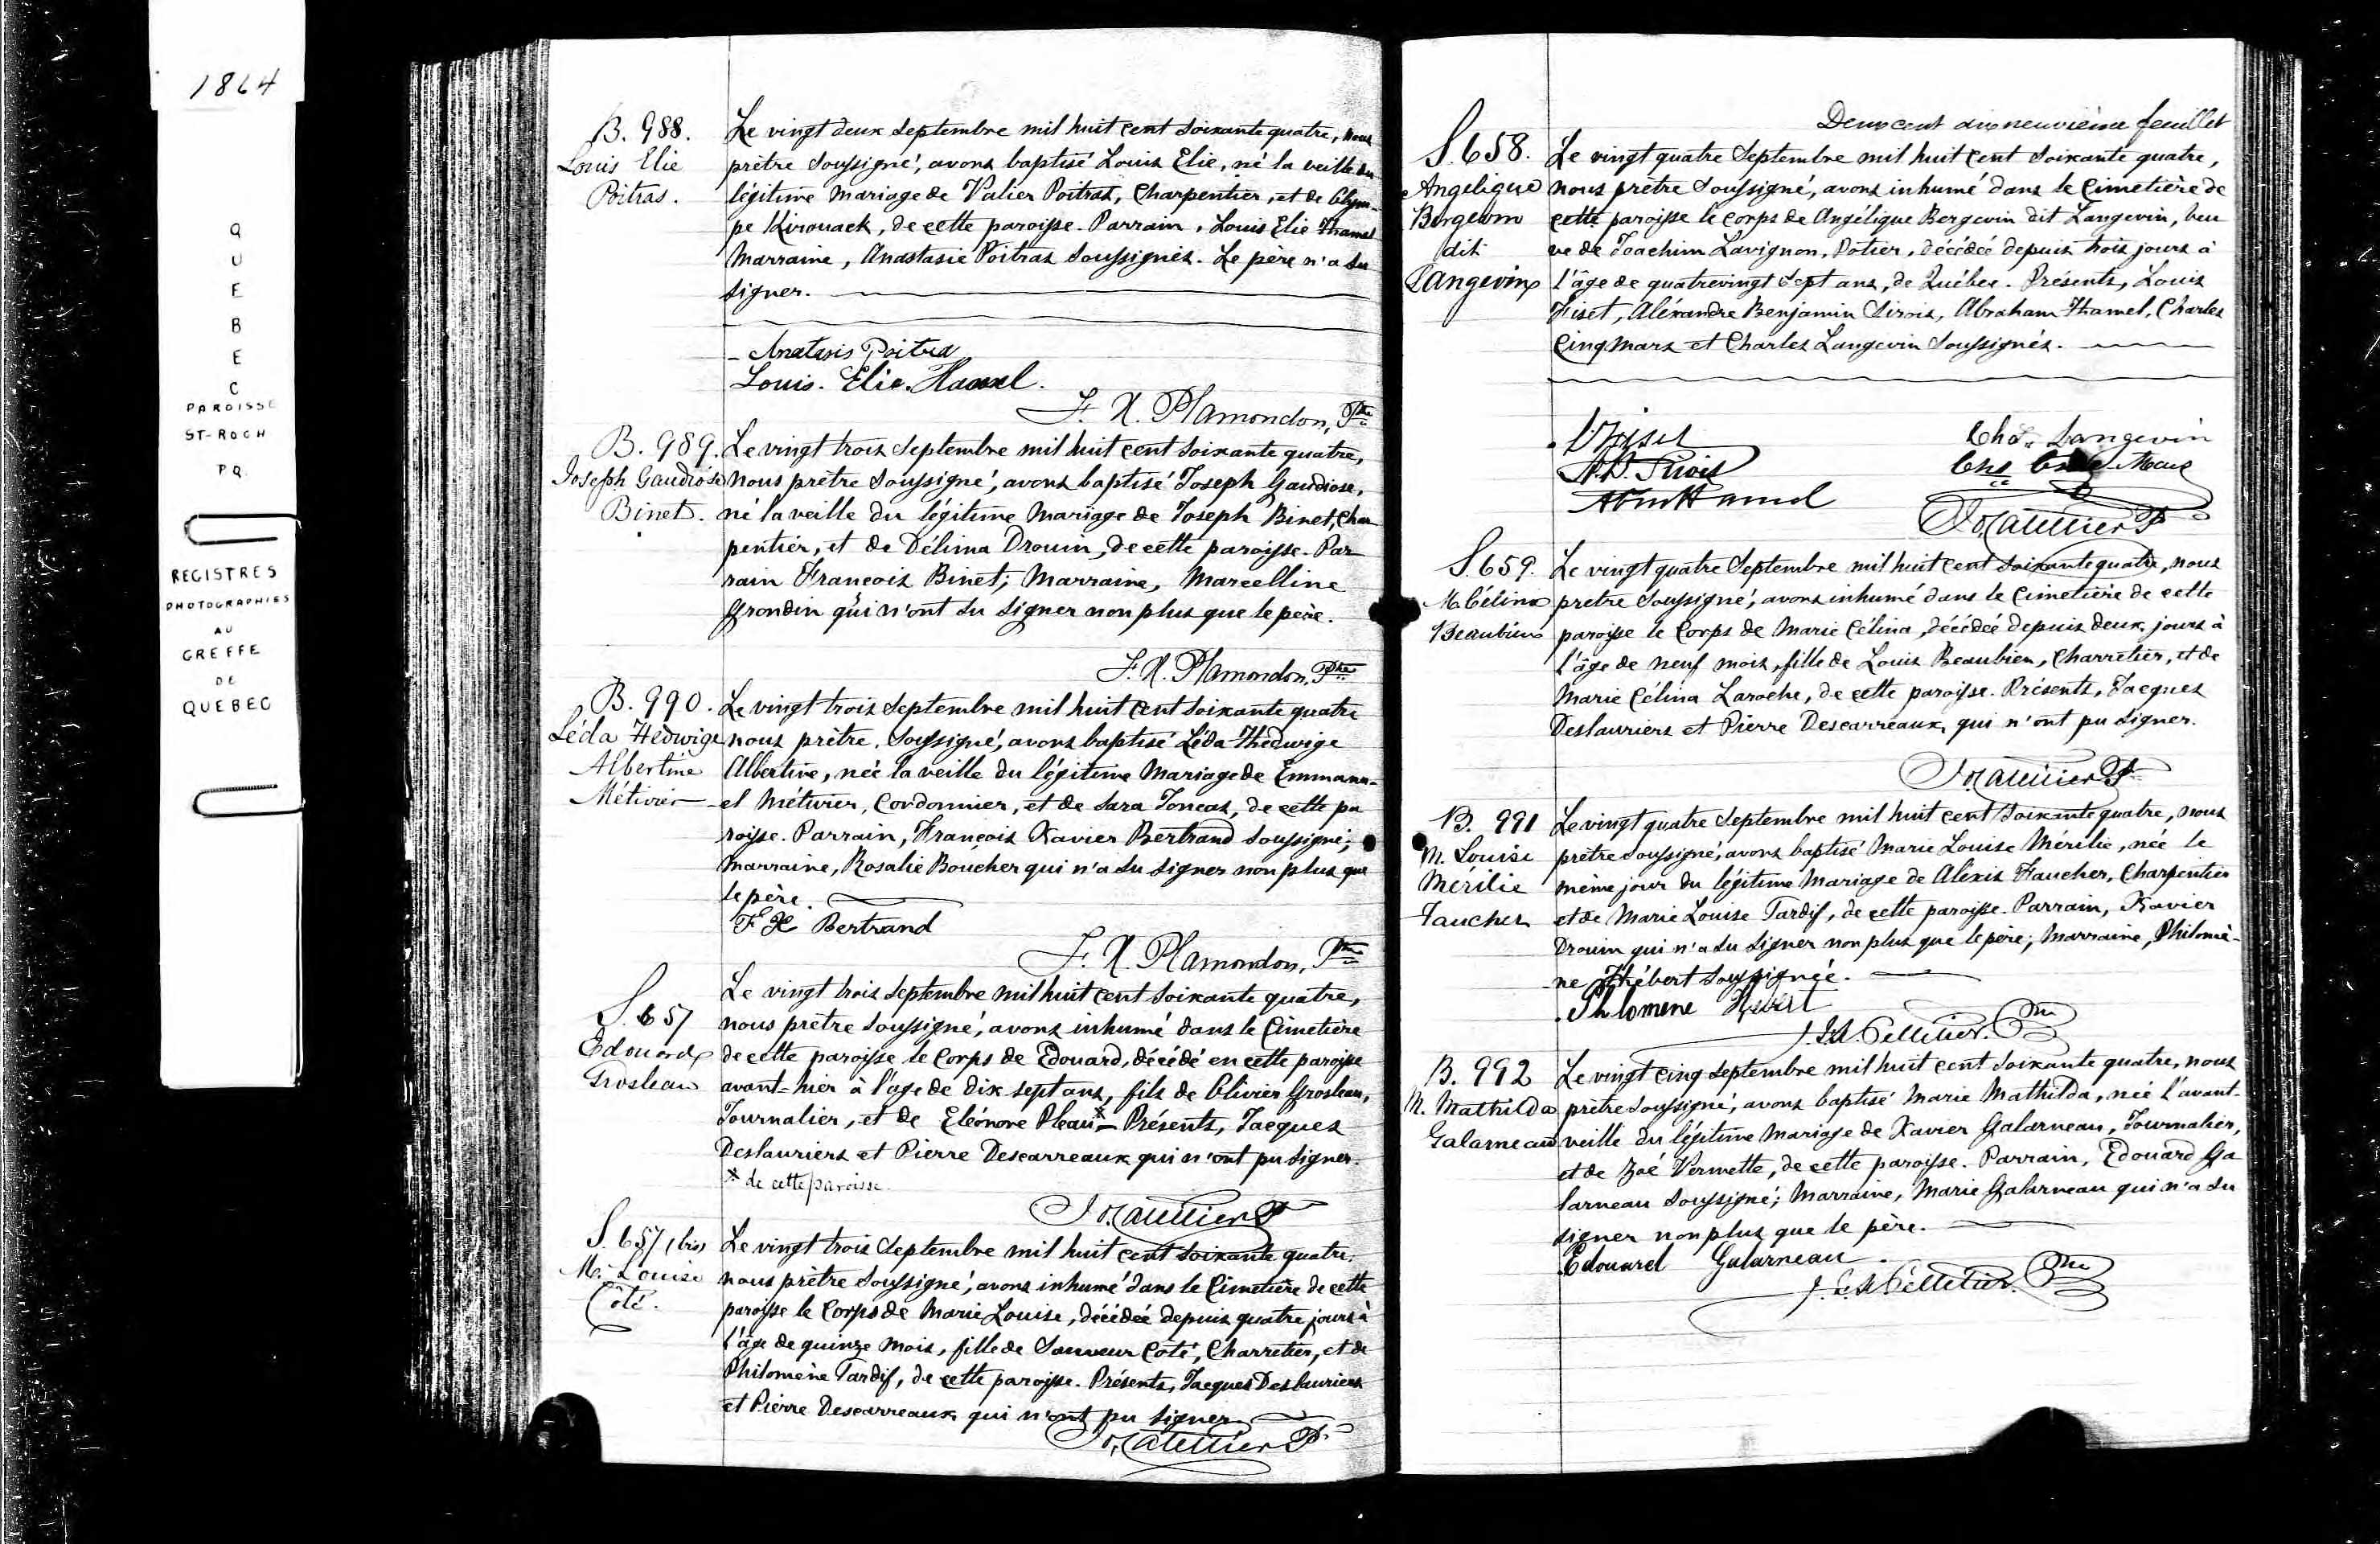 1864
QUEBEC
PAROISSE
ST-ROCH
P.Q.
REGISTRES
PHOTOGRAPHIES
AU
GREFFE
DE
QUEBEC
B. 988.
Louis Elie
Poitras.
Le vingt deux Septembre mil huit cent soixante quatre, nous
prêtre soussigné, avons baptisé Louis Elie, né la veille du
légitime mariage de Valier Poitras, Charpentier, et de Olym-
pe Kirouack, de cette paroisse. Parrain, Louis Elie Hamel
Marraine, Anastasie Poitras soussignés. Le père n'a su
signer.
Anatasis Poitra
Louis. Elie. Hamel.
F. X. Plamondon, Ptre
B. 989.
Joseph Gaudiose
Binet.
Le vingt trois Septembre mil huit cent soixante quatre,
nous prêtre soussigné, avons baptisé Joseph Gaudiose,
né la veille du légitime mariage de Joseph Binet, Char
pentier, et de Délima Drouin, de cette paroisse. Par
rain François Binet; Marraine, Marcelline
Grondin qui n'ont su signer non plus que le père.
F. X. Plamondon, Ptre
B. 990.
Léda Hedwige
Albertine
Métivier
Le vingt trois Septembre mil huit cent soixante quatre
nous prêtre soussigné, avons baptisé Léda Thedwige
Albertine, née la veille du légitime mariage de Emmanu-
el Métivier, Cordonnier, et de Sara Joncas, de cette pa
roisse. Parrain, François Xavier Bertrand soussigné;
marraine, Rosalie Boucher qui n'a su signer non plus que
le père.
F X Bertrand
F. X. Plamondon, Ptre
S. 657
Edouard
Grosleau
Le vingt trois Septembre mil huit cent soixante quatre,
nous prêtre soussigné, avons inhumé dans le Cimetière
de cette paroisse le Corps de Edouard, décédé en cette paroisse
avant-hier à l'âge de dix sept ans, fils de Olivier Grosleau,
Journalier, et de Eléonore Pleau * – Présents, Jacques
Deslauriers et Pierre Descarreaux qui n'ont pu signer.
* de cette paroisse.
S. 657 (bis)
M. Louise
Côté.
Le vingt trois Septembre mil huit cent soixante quatre,
nous prêtre soussigné, avons inhumé dans le Cimetière de cette
paroisse le Corps de Marie Louise, décédée depuis quatre jours à
l'âge de quinze mois, fille de Sauveur Côté, Charretier, et de
Philomène Tardif, de cette paroisse. Présents, Jacques Deslauriers
et Pierre Descarreaux qui n'ont pu signer
Deux cent dix neuvième feuillet
S. 658.
Angelique
Bergevin
dit
Langevin
Le vingt quatre Septembre mil huit cent soixante quatre,
nous prêtre soussigné, avons inhumé dans le Cimetière de
cette paroisse le Corps de Angélique Bergevin dit Langevin, veu
ve de Joachim Lavignon, Potier, décédée depuis trois jours à
l'âge de quatrevingt sept ans, de Québec. Présents, Louis
Fiset, Aléxandre Benjamin Sirois, Abraham Hamel, Charles
Cinqmars et Charles Langevin soussignés.
L. Fiset
A. B. Sirois
Abm Hamel
Chs. Langevin
Chs Mars
S. 659.
M. Célina
Beaubien
Le vingt quatre Septembre mil huit cent soixante quatre, nous
prêtre soussigné, avons inhumé dans le Cimetière de cette
paroisse le Corps de Marie Célina, décédée depuis deux jours à
l'âge de neuf mois, fille de Louis Beaubien, Charretier, et de
Marie Célina Laroche, de cette paroisse. Présents, Jacques
Deslauriers et Pierre Descarreaux, qui n'ont pu signer.
B. 991
M. Louise
Mérilie
Faucher
Le vingt quatre Septembre mil huit cent soixante quatre, nous
prêtre soussigné, avons baptisé Marie Louise Mérilie, née le
même jour du légitime mariage de Alexis Faucher, Charpentier
et de Marie Louise Tardif, de cette paroisse. Parrain, Xavier
Drouin qui n'a su signer non plus que le père; Marraine, Philomè-
ne Hébert soussignée.
Philomene Hebert
Pelletier. Ptre
B. 992
M. Mathilda
Galarneau
Le vingt cinq Septembre mil huit cent soixante quatre, nous
prêtre soussigné, avons baptisé Marie Mathilda, née l'avant-
veille du légitime mariage de Xavier Galarneau, Journalier,
et de Zoé Vermette, de cette paroisse. Parrain, Edouard Ga
larneau soussigné; Marraine, Marie Galarneau qui n'a su
signer non plus que le père.
Edouard Galarneau
Pelletier. Ptre